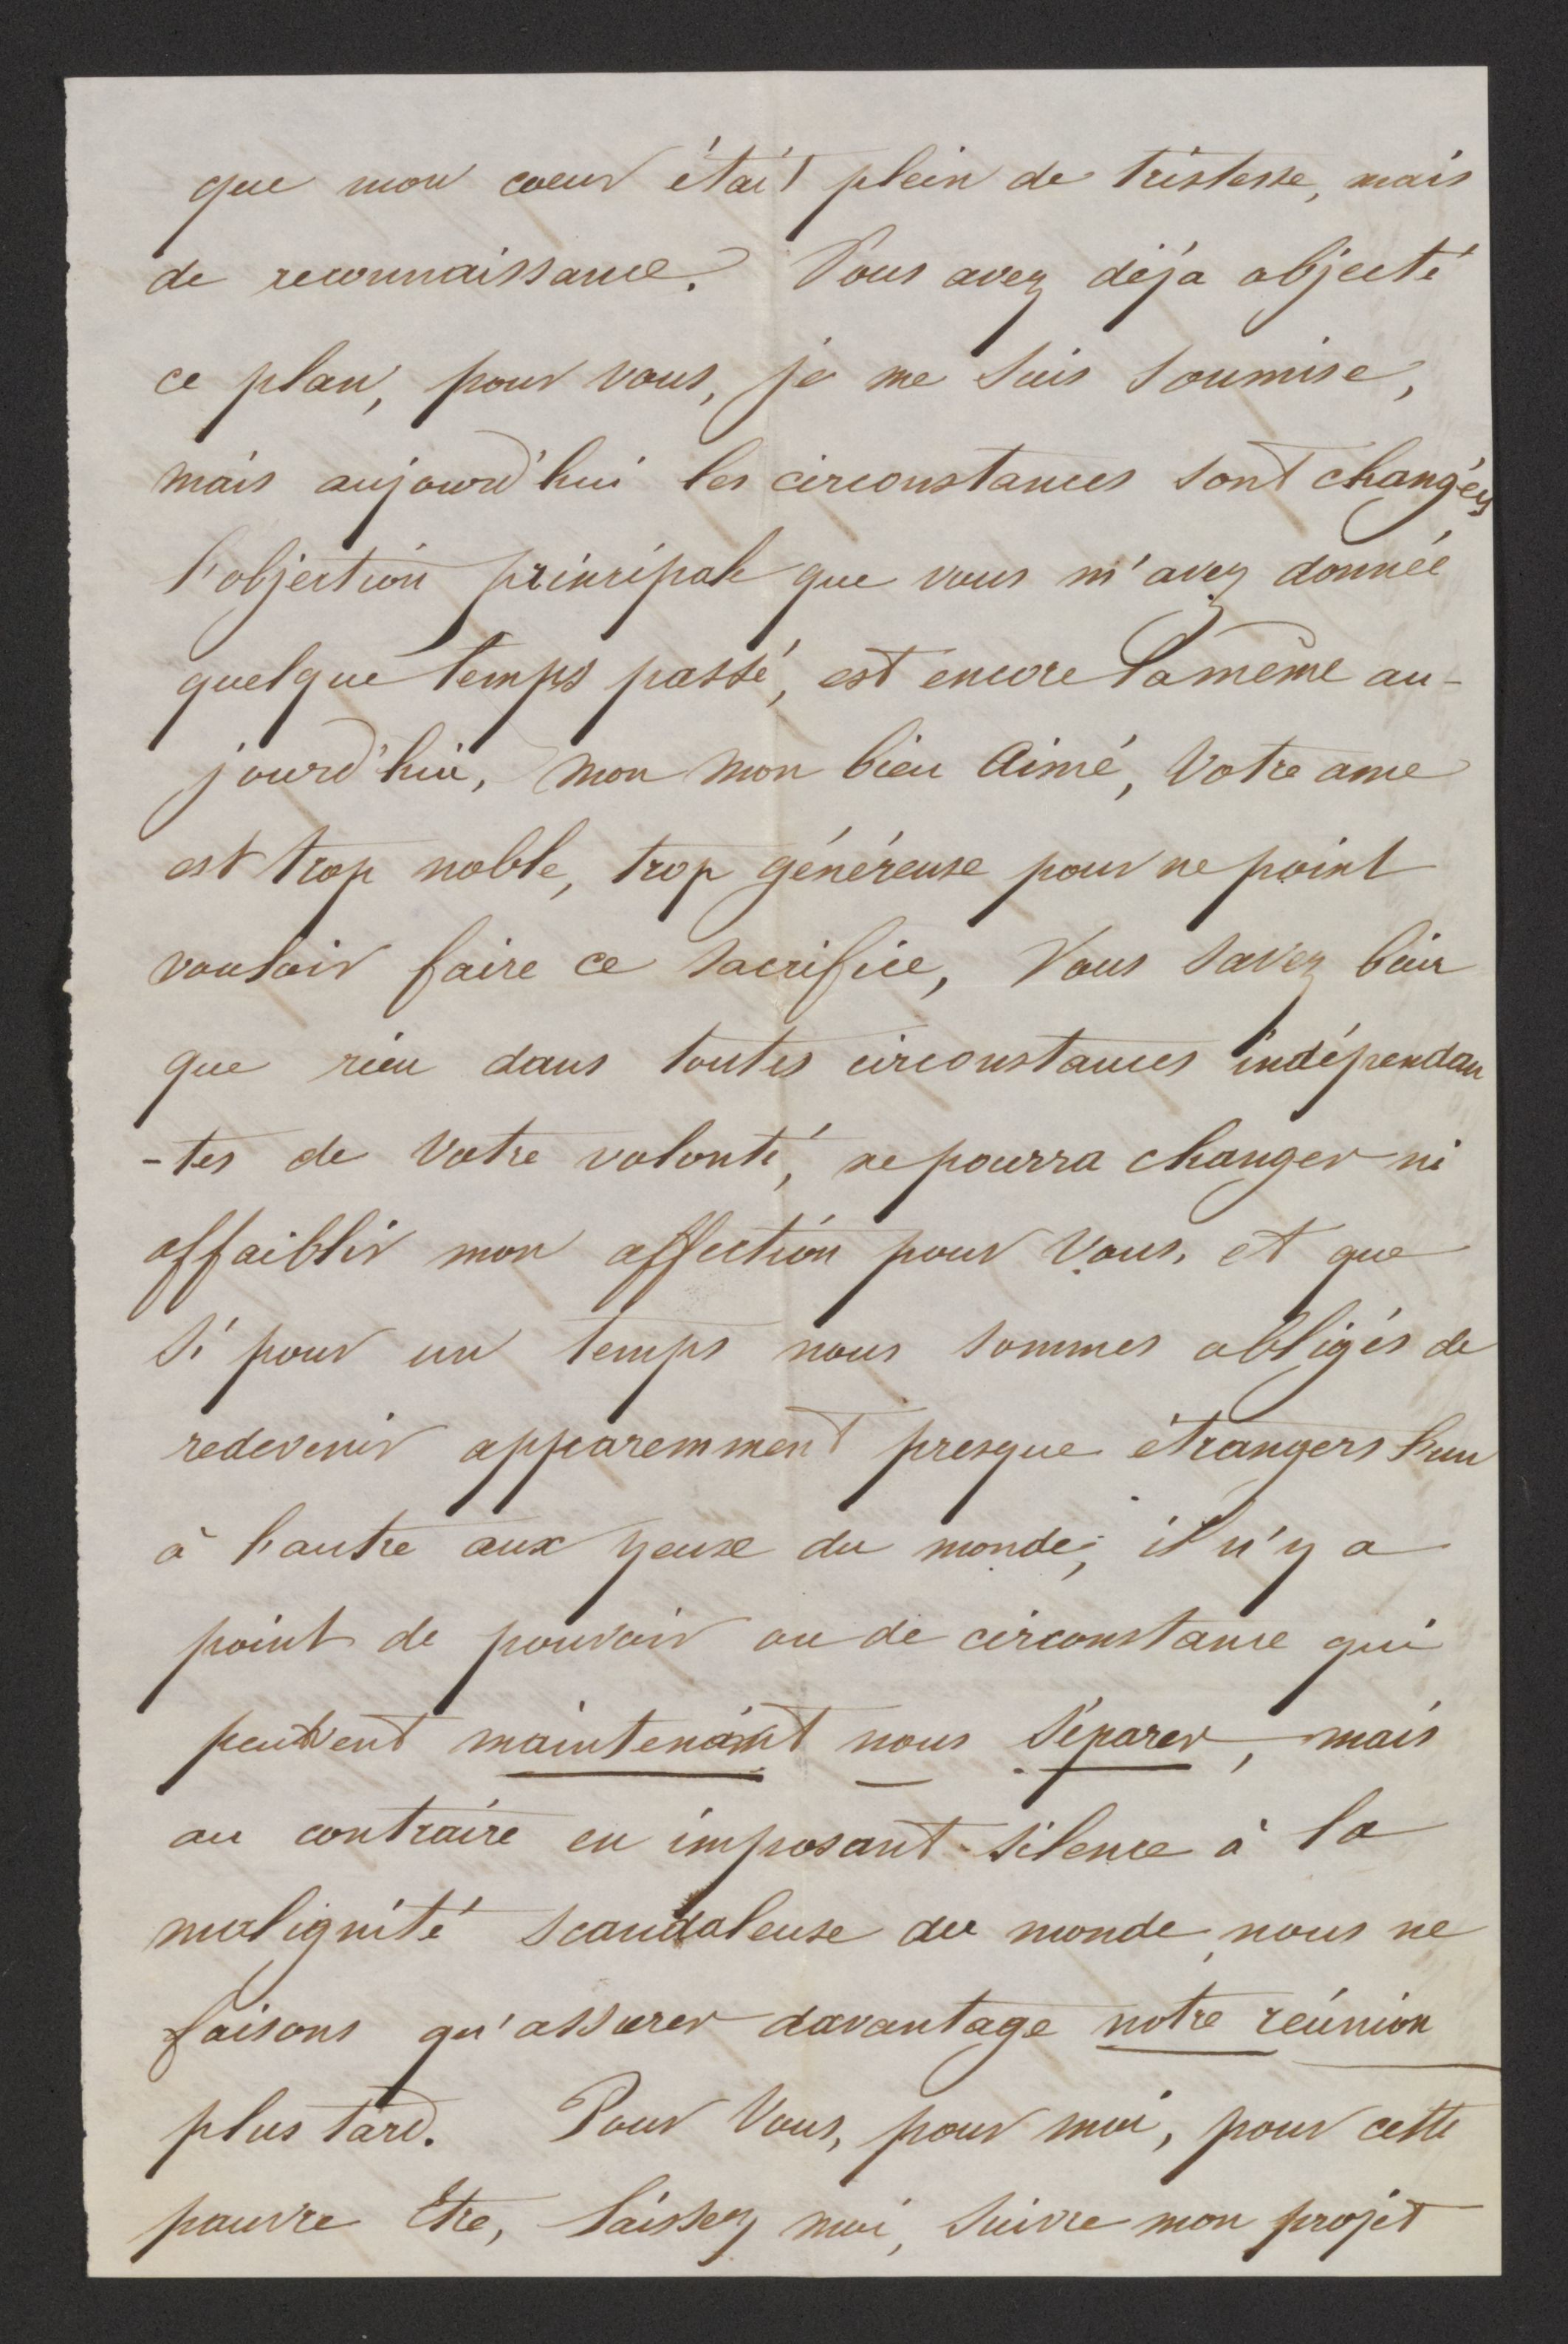 que mon coeur était plein de tristesse, mais
de reconnaissance. Vous avez déja objecté
ce plan, pour vous, je me suis soumise,
mais aujourd'hui les circonstances sont changées
l'objection principale que vous m'avez donnée
quelque temps passé, est encore la même au-
jourd'hui, mon mon bien Aimé, Votre ame
est trop noble, trop généreuse pour ne point
vouloir faire ce sacrifice, Vous savez bien
que rien dans toutes circonstances indépendan
-tes de Votre volonté, ne pourra changer ni
affaiblir mon affection pour Vous, et que
si pour un temps nous sommes obligés de
redevenir apparemment presque étrangers l'un
à l'autre aux yeux du monde; il n'y a
point de pouvoir ou de circonstance qui
peuvent maintenant nous séparer, mais
au contraire en imposant silence à la
malignité scandaleuse du monde, nous ne
faisons qu'assurer davantage notre réunion
plus tard. Pour Vous, pour moi, pour cette
pauvre Etre, laissez moi, suivre mon projet